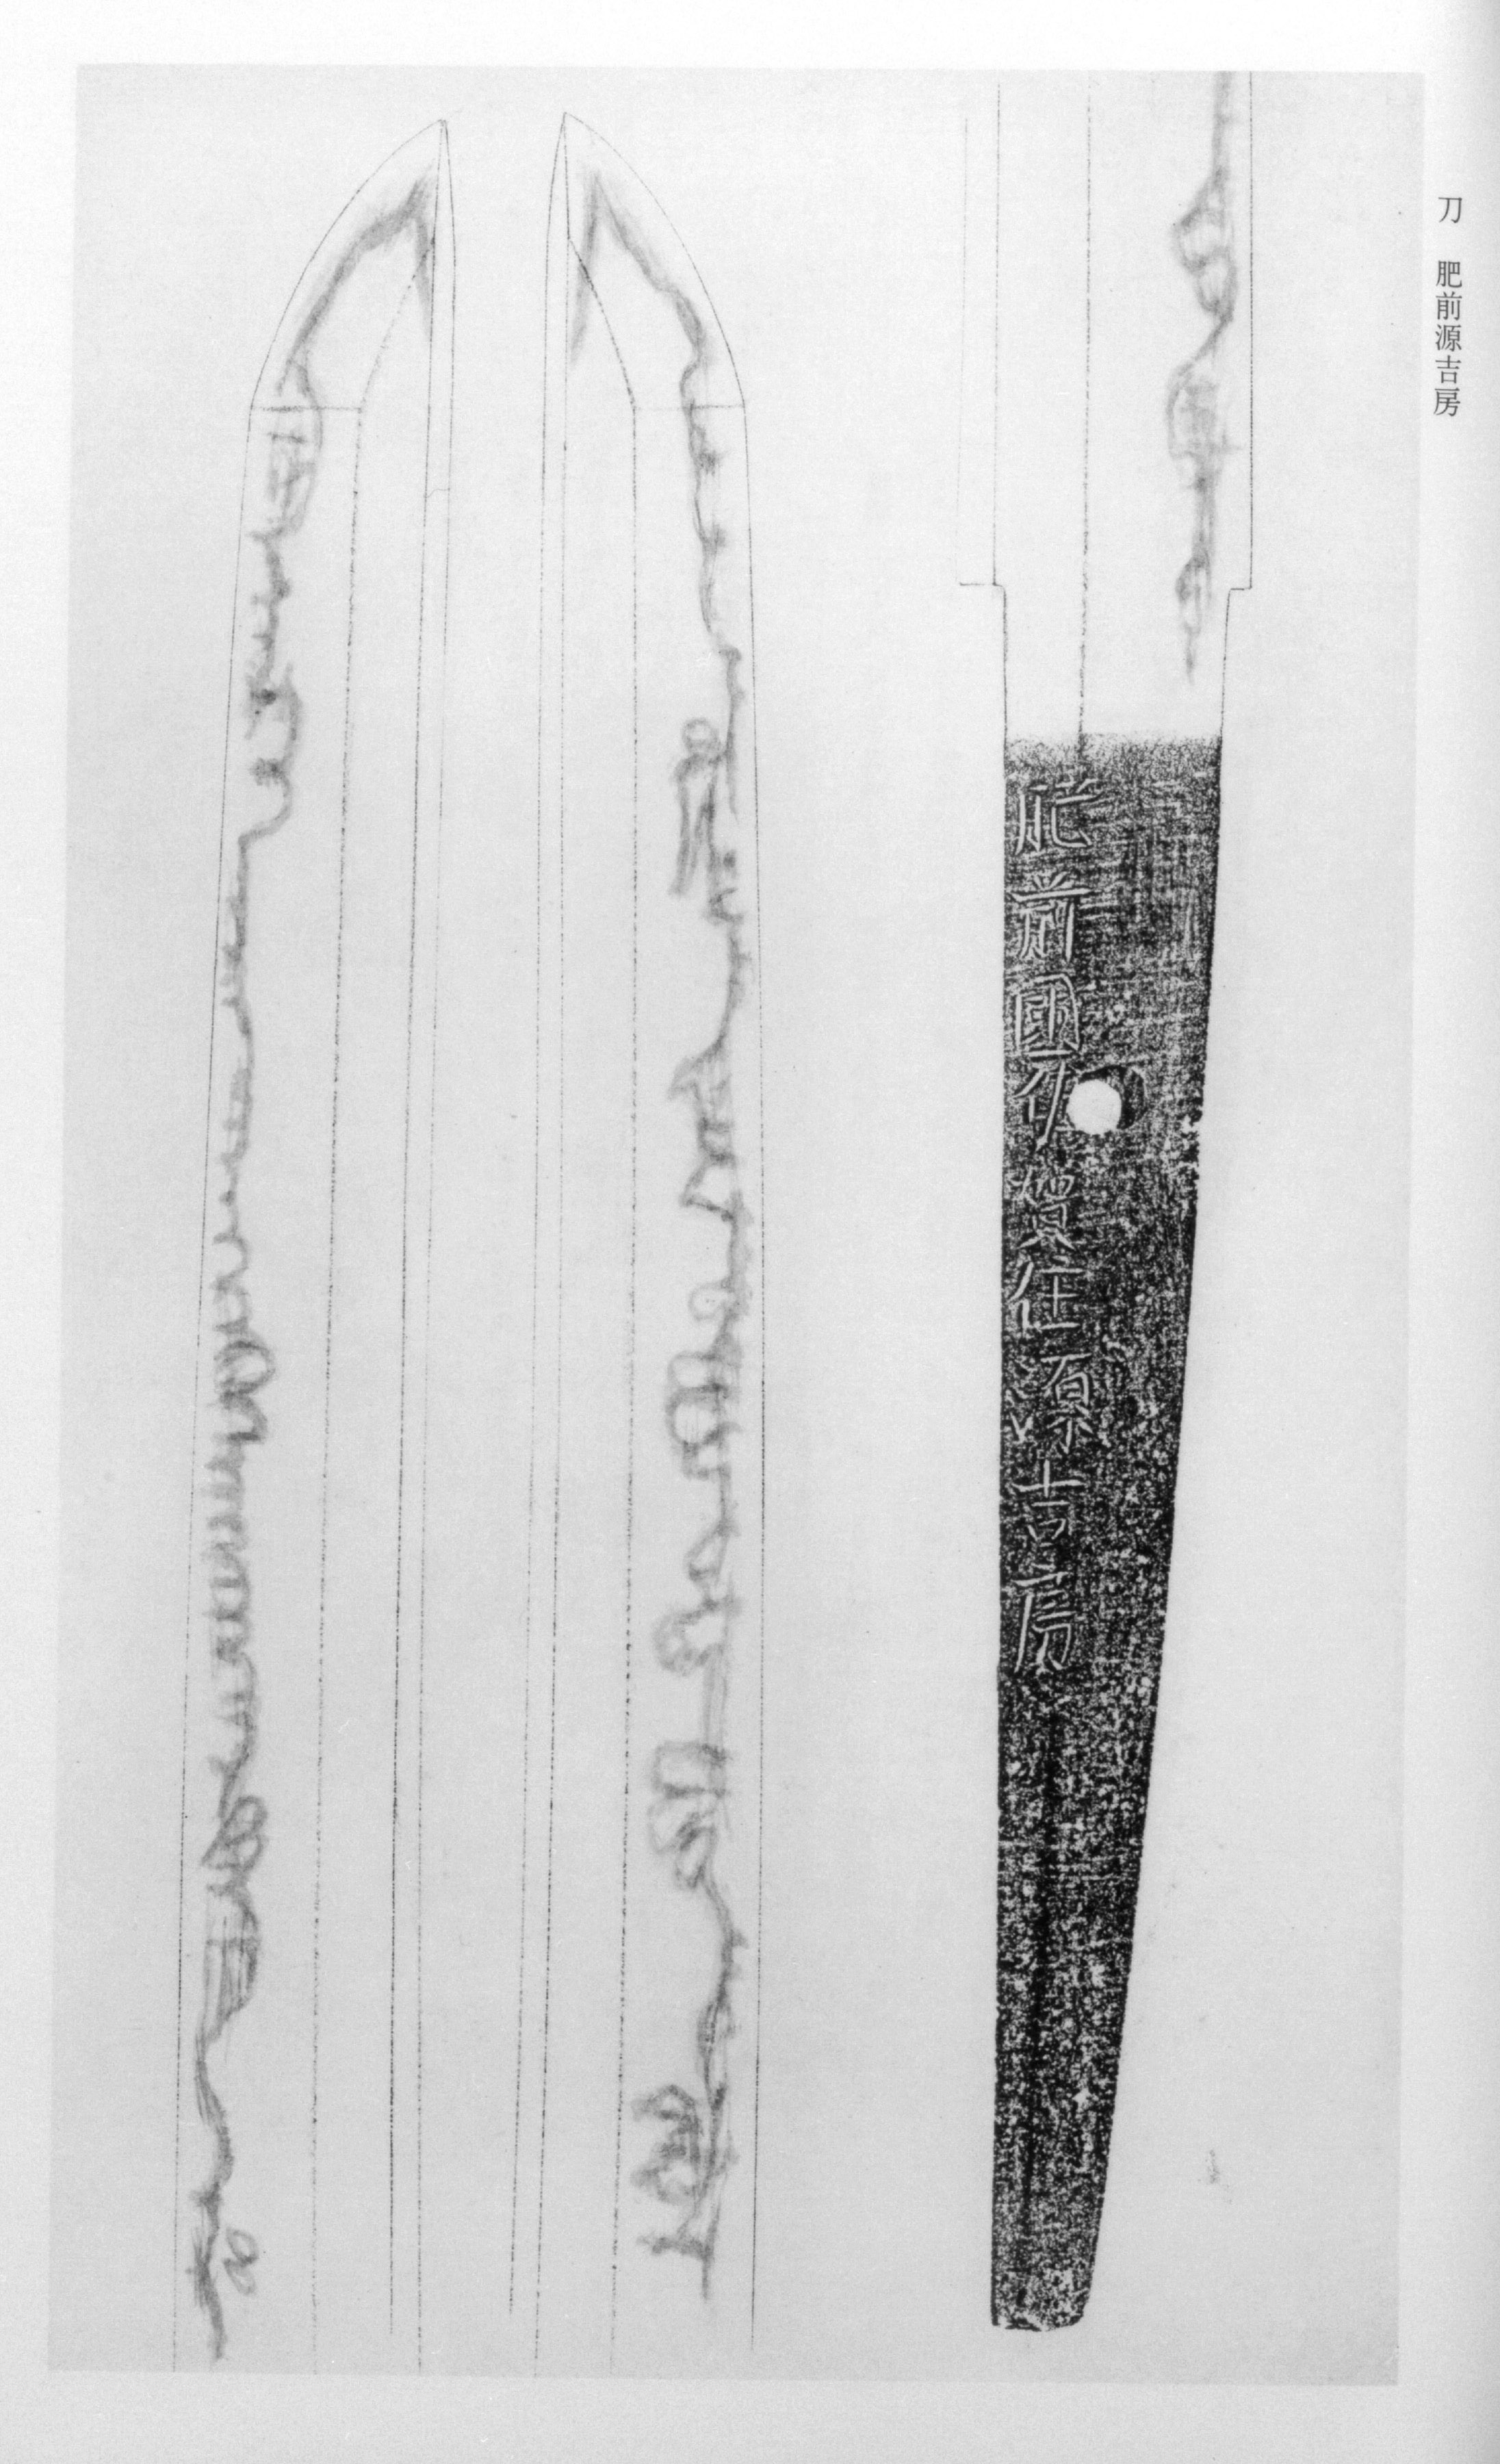 刀 肥前源吉房
肥前國佐賀住源吉房